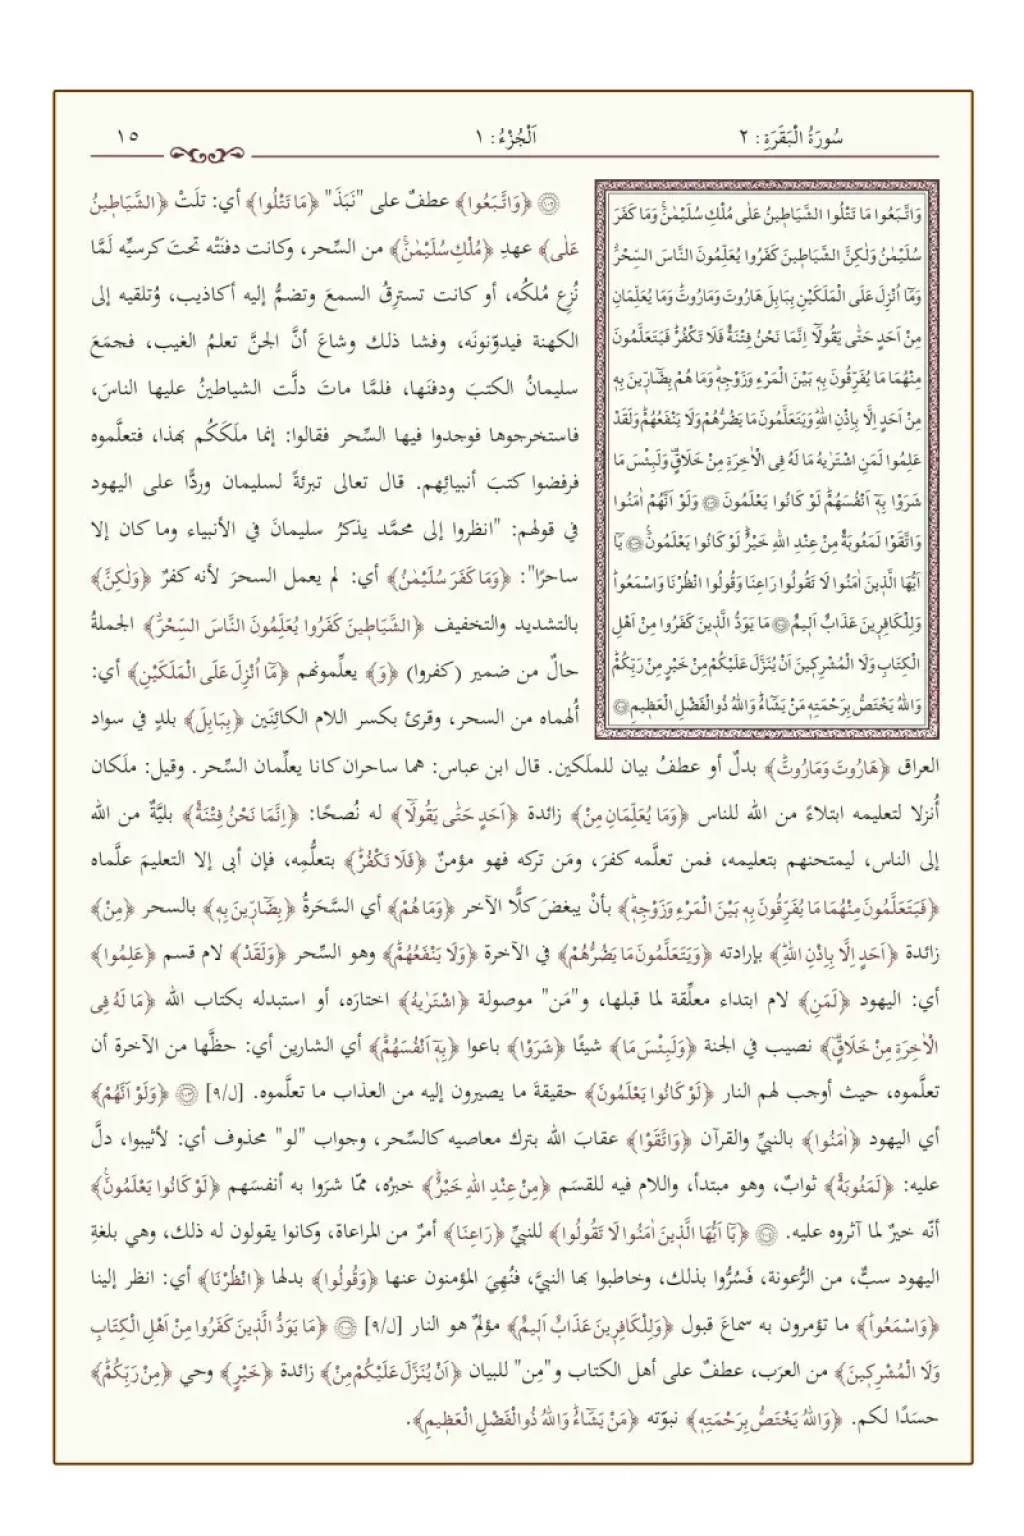 سُورَةُ الْبَقَرَةِ: ٢
اَلْجُزْءُ: ١
١٥
وَاتَّبَعُوا مَا تَتْلُوا الشَّيَاطٖينُ عَلٰى مُلْكِ سُلَيْمٰنَۚ وَمَا كَفَرَ
سُلَيْمٰنُ وَلٰكِنَّ الشَّيَاطٖينَ كَفَرُوا يُعَلِّمُونَ النَّاسَ السِّحْرَۗ
وَمَٓا اُنْزِلَ عَلَى الْمَلَكَيْنِ بِبَابِلَ هَارُوتَ وَمَارُوتَۜ وَمَا يُعَلِّمَانِ
مِنْ اَحَدٍ حَتّٰى يَقُولَٓا اِنَّمَا نَحْنُ فِتْنَةٌ فَلَا تَكْفُرْۜ فَيَتَعَلَّمُونَ
مِنْهُمَا مَا يُفَرِّقُونَ بِهٖ بَيْنَ الْمَرْءِ وَزَوْجِهٖۜ وَمَا هُمْ بِضَٓارّٖينَ بِهٖ
مِنْ اَحَدٍ اِلَّا بِاِذْنِ اللّٰهِۜ وَيَتَعَلَّمُونَ مَا يَضُرُّهُمْ وَلَا يَنْفَعُهُمْۜ وَلَقَدْ
عَلِمُوا لَمَنِ اشْتَرٰيهُ مَا لَهُ فِى الْاٰخِرَةِ مِنْ خَلَاقٍۜ وَلَبِئْسَ مَا
شَرَوْا بِهٖٓ اَنْفُسَهُمْۜ لَوْ كَانُوا يَعْلَمُونَ ۝ وَلَوْ اَنَّهُمْ اٰمَنُوا
وَاتَّقَوْا لَمَثُوبَةٌ مِنْ عِنْدِ اللّٰهِ خَيْرٌۜ لَوْ كَانُوا يَعْلَمُونَ۟ ۝ يَٓا
اَيُّهَا الَّذٖينَ اٰمَنُوا لَا تَقُولُوا رَاعِنَا وَقُولُوا انْظُرْنَا وَاسْمَعُواۜ
وَلِلْكَافِرٖينَ عَذَابٌ اَلٖيمٌ ۝ مَا يَوَدُّ الَّذٖينَ كَفَرُوا مِنْ اَهْلِ
الْكِتَابِ وَلَا الْمُشْرِكٖينَ اَنْ يُنَزَّلَ عَلَيْكُمْ مِنْ خَيْرٍ مِنْ رَبِّكُمْۜ
وَاللّٰهُ يَخْتَصُّ بِرَحْمَتِهٖ مَنْ يَشَٓاءُۜ وَاللّٰهُ ذُو الْفَضْلِ الْعَظٖيمِ ۝
۝ ﴿وَاتَّبَعُوا﴾ عطفٌ على "نَبَذَ" ﴿مَا تَتْلُوا﴾ أي: تلَتْ ﴿الشَّيَاطٖينُ
عَلٰى﴾ عهدِ ﴿مُلْكِ سُلَيْمٰنَۚ﴾ من السِّحر، وكانت دفنَتْه تحتَ كرسيِّه لَمَّا
نُزِع مُلكُه، أو كانت تسترِقُ السمعَ وتضمُّ إليه أكاذيب، وُتلقيه إلى
الكهنة فيدوّنونَه، وفشا ذلك وشاعَ أنَّ الجنَّ تعلمُ الغيب، فجمَعَ
سليمانُ الكتبَ ودفنَها، فلمَّا ماتَ دلَّت الشياطينُ عليها الناسَ،
فاستخرجوها فوجدوا فيها السِّحر فقالوا: إنما ملَكَكُم بهذا، فتعلَّموه
فرفضوا كتبَ أنبيائِهم. قال تعالى تبرئةً لسليمان وردًّا على اليهود
في قولهم: "انظروا إلى محمَّد يذكرُ سليمانَ في الأنبياء وما كان إلا
ساحرًا": ﴿وَمَا كَفَرَ سُلَيْمٰنُ﴾ أي: لم يعمل السحرَ لأنه كفرٌ ﴿وَلٰكِنَّ﴾
بالتشديد والتخفيف ﴿الشَّيَاطٖينَ كَفَرُوا يُعَلِّمُونَ النَّاسَ السِّحْرَۗ﴾ الجملةُ
حالٌ من ضمير (كفروا) ﴿وَ﴾ يعلِّمونهم ﴿مَٓا اُنْزِلَ عَلَى الْمَلَكَيْنِ﴾ أي:
أُلهماه من السحر، وقرئ بكسر اللام الكائِنَين ﴿بِبَابِلَ﴾ بلدٍ في سواد
العراق ﴿هَارُوتَ وَمَارُوتَۜ﴾ بدلٌ أو عطفُ بيان للملَكين. قال ابن عباس: هما ساحران كانا يعلِّمان السِّحر. وقيل: ملَكان
أُنزلا لتعليمه ابتلاءً من الله للناس ﴿وَمَا يُعَلِّمَانِ مِنْ﴾ زائدة ﴿اَحَدٍ حَتّٰى يَقُولَٓا﴾ له نُصحًا: ﴿اِنَّمَا نَحْنُ فِتْنَةٌ﴾ بليَّةٌ من الله
إلى الناس، ليمتحنهم بتعليمه، فمن تعلَّمه كفرَ، ومَن تركه فهو مؤمنٌ ﴿فَلَا تَكْفُرْۜ﴾ بتعلُّمِه، فإن أبى إلا التعليمَ علَّماه
﴿فَيَتَعَلَّمُونَ مِنْهُمَا مَا يُفَرِّقُونَ بِهٖ بَيْنَ الْمَرْءِ وَزَوْجِهٖۜ﴾ بأنْ يبغضَ كلًّا الآخر ﴿وَمَا هُمْ﴾ أي السَّحَرةُ ﴿بِضَٓارّٖينَ بِهٖ﴾ بالسحر ﴿مِنْ﴾
زائدة ﴿اَحَدٍ اِلَّا بِاِذْنِ اللّٰهِۜ﴾ بإرادته ﴿وَيَتَعَلَّمُونَ مَا يَضُرُّهُمْ﴾ في الآخرة ﴿وَلَا يَنْفَعُهُمْۜ﴾ وهو السِّحر ﴿وَلَقَدْ﴾ لام قسم ﴿عَلِمُوا﴾
أي: اليهود ﴿لَمَنِ﴾ لام ابتداء معلِّقة لما قبلها، و"مَن" موصولة ﴿اشْتَرٰيهُ﴾ اختارَه، أو استبدله بكتاب الله ﴿مَا لَهُ فِى
الْاٰخِرَةِ مِنْ خَلَاقٍۜ﴾ نصيب في الجنة ﴿وَلَبِئْسَ مَا﴾ شيئًا ﴿شَرَوْا﴾ باعوا ﴿بِهٖٓ اَنْفُسَهُمْۜ﴾ أي الشارين أي: حظَّها من الآخرة أن
تعلَّموه، حيث أوجب لهم النار ﴿لَوْ كَانُوا يَعْلَمُونَ﴾ حقيقةَ ما يصيرون إليه من العذاب ما تعلَّموه. [ل/٩] ۝ ﴿وَلَوْ اَنَّهُمْ﴾
أي اليهود ﴿اٰمَنُوا﴾ بالنبيِّ والقرآن ﴿وَاتَّقَوْا﴾ عقابَ الله بترك معاصيه كالسِّحر، وجواب "لو" محذوف أي: لأثيبوا، دلَّ
عليه: ﴿لَمَثُوبَةٌ﴾ ثوابٌ، وهو مبتدأ، واللام فيه للقسَم ﴿مِنْ عِنْدِ اللّٰهِ خَيْرٌۜ﴾ خبرُه، ممّا شرَوا به أنفسَهم ﴿لَوْ كَانُوا يَعْلَمُونَ۟﴾
أنّه خيرٌ لما آثروه عليه. ۝ ﴿يَٓا اَيُّهَا الَّذٖينَ اٰمَنُوا لَا تَقُولُوا﴾ للنبيِّ ﴿رَاعِنَا﴾ أمرٌ من المراعاة، وكانوا يقولون له ذلك، وهي بلغةِ
اليهود سبٌّ، من الرُّعونة، فَسُرُّوا بذلك، وخاطبوا بها النبيَّ، فنُهِيَ المؤمنون عنها ﴿وَقُولُوا﴾ بدلها ﴿انْظُرْنَا﴾ أي: انظر إلينا
﴿وَاسْمَعُواۜ﴾ ما تؤمرون به سماعَ قبول ﴿وَلِلْكَافِرٖينَ عَذَابٌ اَلٖيمٌ﴾ مؤلمٌ هو النار [ل/٩] ۝ ﴿مَا يَوَدُّ الَّذٖينَ كَفَرُوا مِنْ اَهْلِ الْكِتَابِ
وَلَا الْمُشْرِكٖينَ﴾ من العرَب، عطفٌ على أهل الكتاب و"مِن" للبيان ﴿اَنْ يُنَزَّلَ عَلَيْكُمْ مِنْ﴾ زائدة ﴿خَيْرٍ﴾ وحي ﴿مِنْ رَبِّكُمْۜ﴾
حسَدًا لكم. ﴿وَاللّٰهُ يَخْتَصُّ بِرَحْمَتِهٖ﴾ نبوّته ﴿مَنْ يَشَٓاءُۜ وَاللّٰهُ ذُو الْفَضْلِ الْعَظٖيمِ﴾.